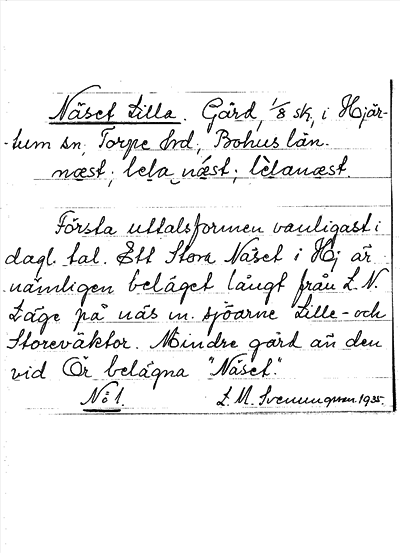 Näset Lilla. Gård, 1/8 sk, i Hjär-
-tum sn, Torpe hrd, Bohus län.
næst; lela næ̀st; lèlanæst.
Första uttalsformen vanligast i
dagl. tal. Ett Stora Näset i Hj är
nämligen beläget långt från L.N.
Läge på näs m. sjöarne Lille- och
Storeväktor. Mindre gård än den
vid Ör belägna "Näset".
No 1. L. M. Svenungsson. 1935.